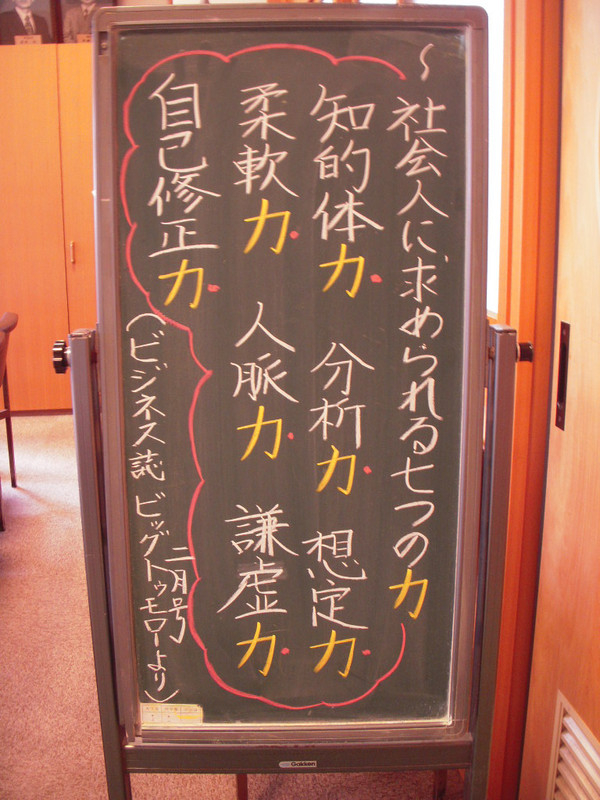 〜社会人に求められる七つの力
知的体力・分析力・想定力・
柔軟力・人脈力・謙虚力・
自己修正力・
（ビジネス誌ビッグトゥモローより）
二月号
Gakken